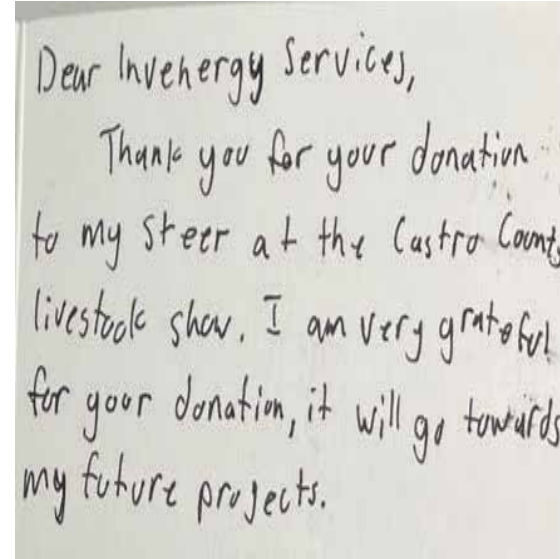 Dear Invenergy Services,
Thank you for your donation
to my steer at the Castro County
livestock show. I am very grateful
for your donation, it will go towards
my future projects.